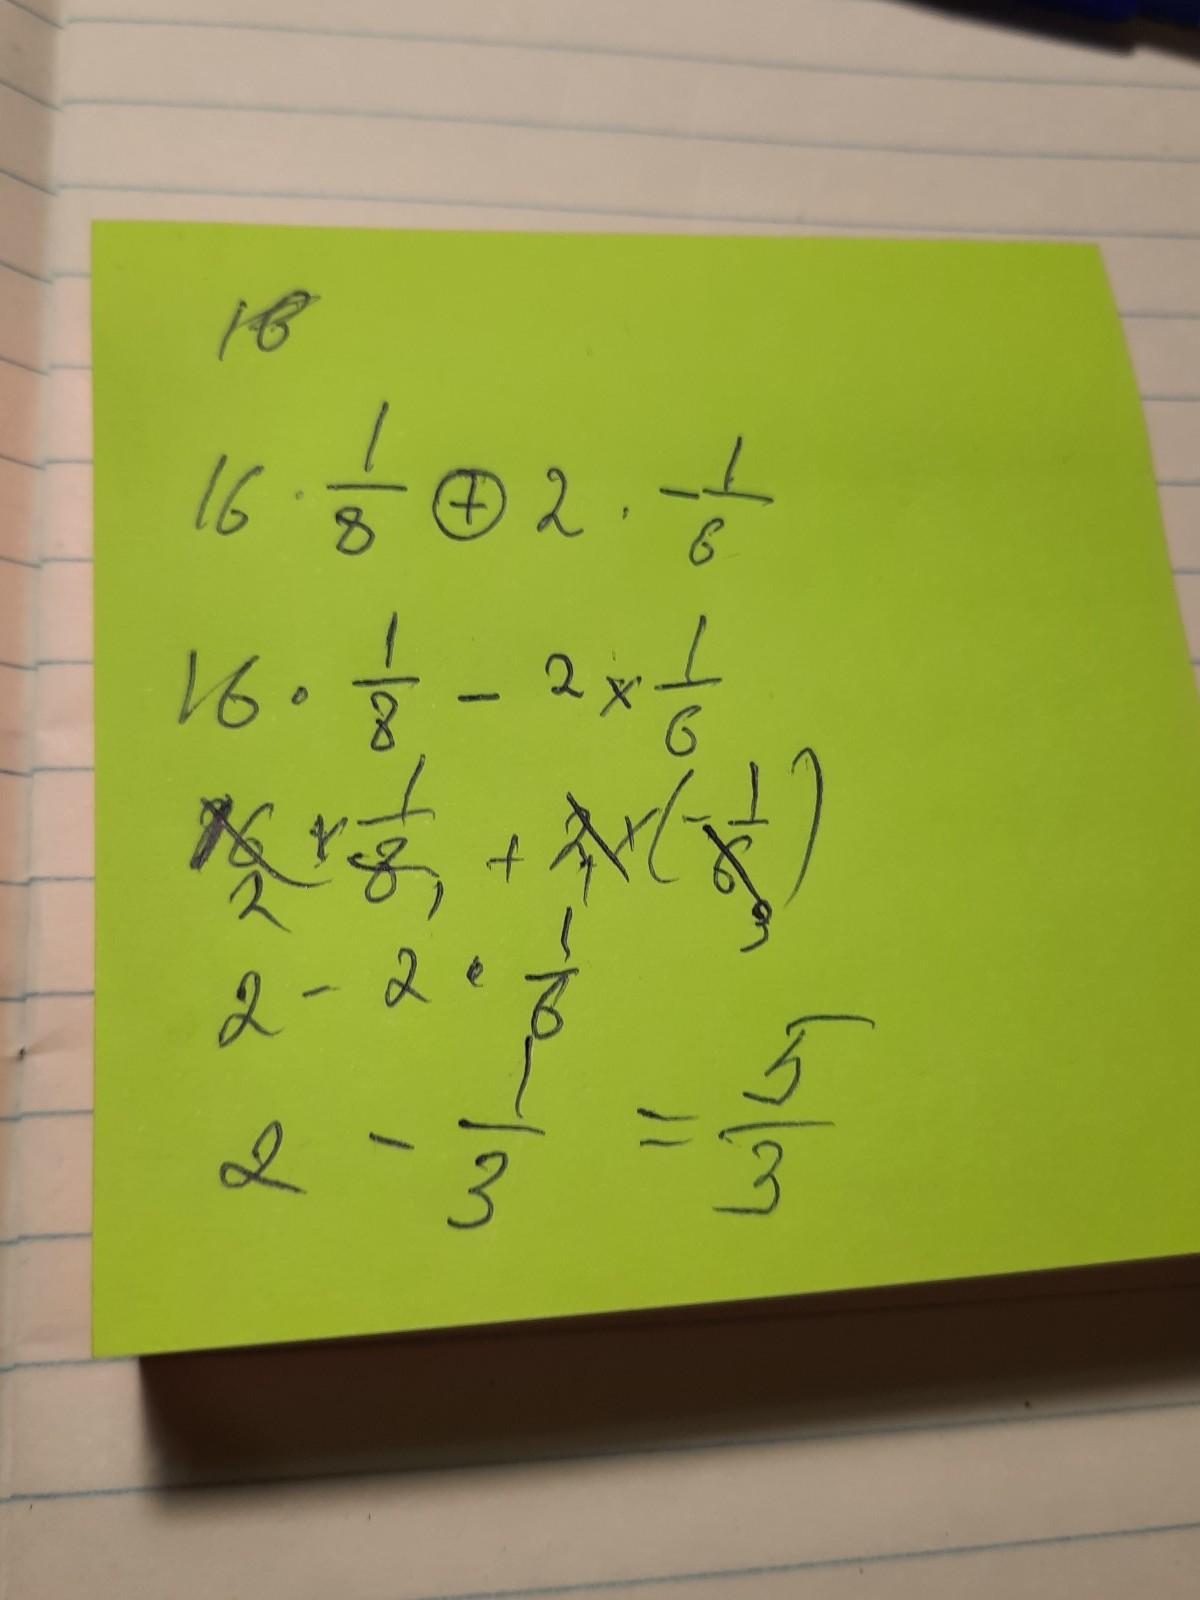 16
16 · 1/8 ⊕ 2 · -1/6
16 · 1/8 - 2 × 1/6
16 2 × 1/8 1 + 2 1 × (-1/6 3)
2 - 2 · 1/6
2 - 1/3 = 5/3